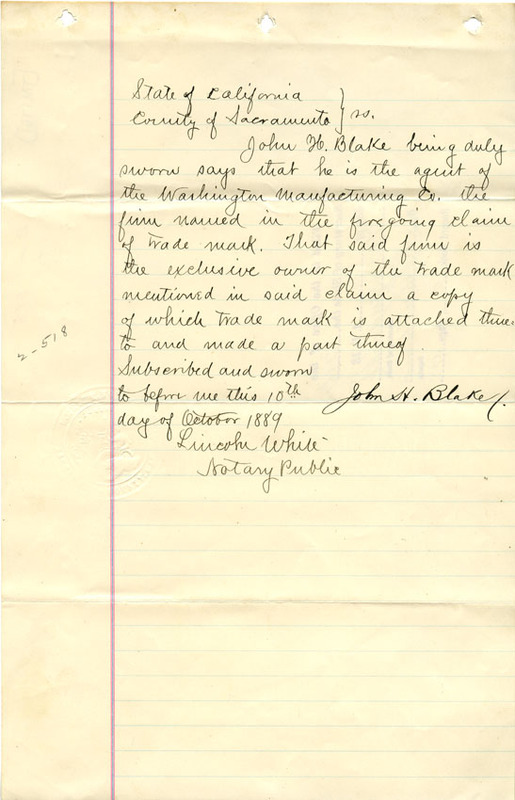 State of California
County of Sacramento } ss.
John H. Blake being duly
sworn says that he is the agent of
the Washington Manufacturing Co. the
firm named in the foregoing claim
of trade mark. That said firm is
the exclusive owner of the trade mark
mentioned in said claim a copy
of which trade mark is attached there-
to and made a part thereof.
Subscribed and sworn
to before me this 10th John H. Blake
day of October 1889
Lincoln White
Notary Public
2-518